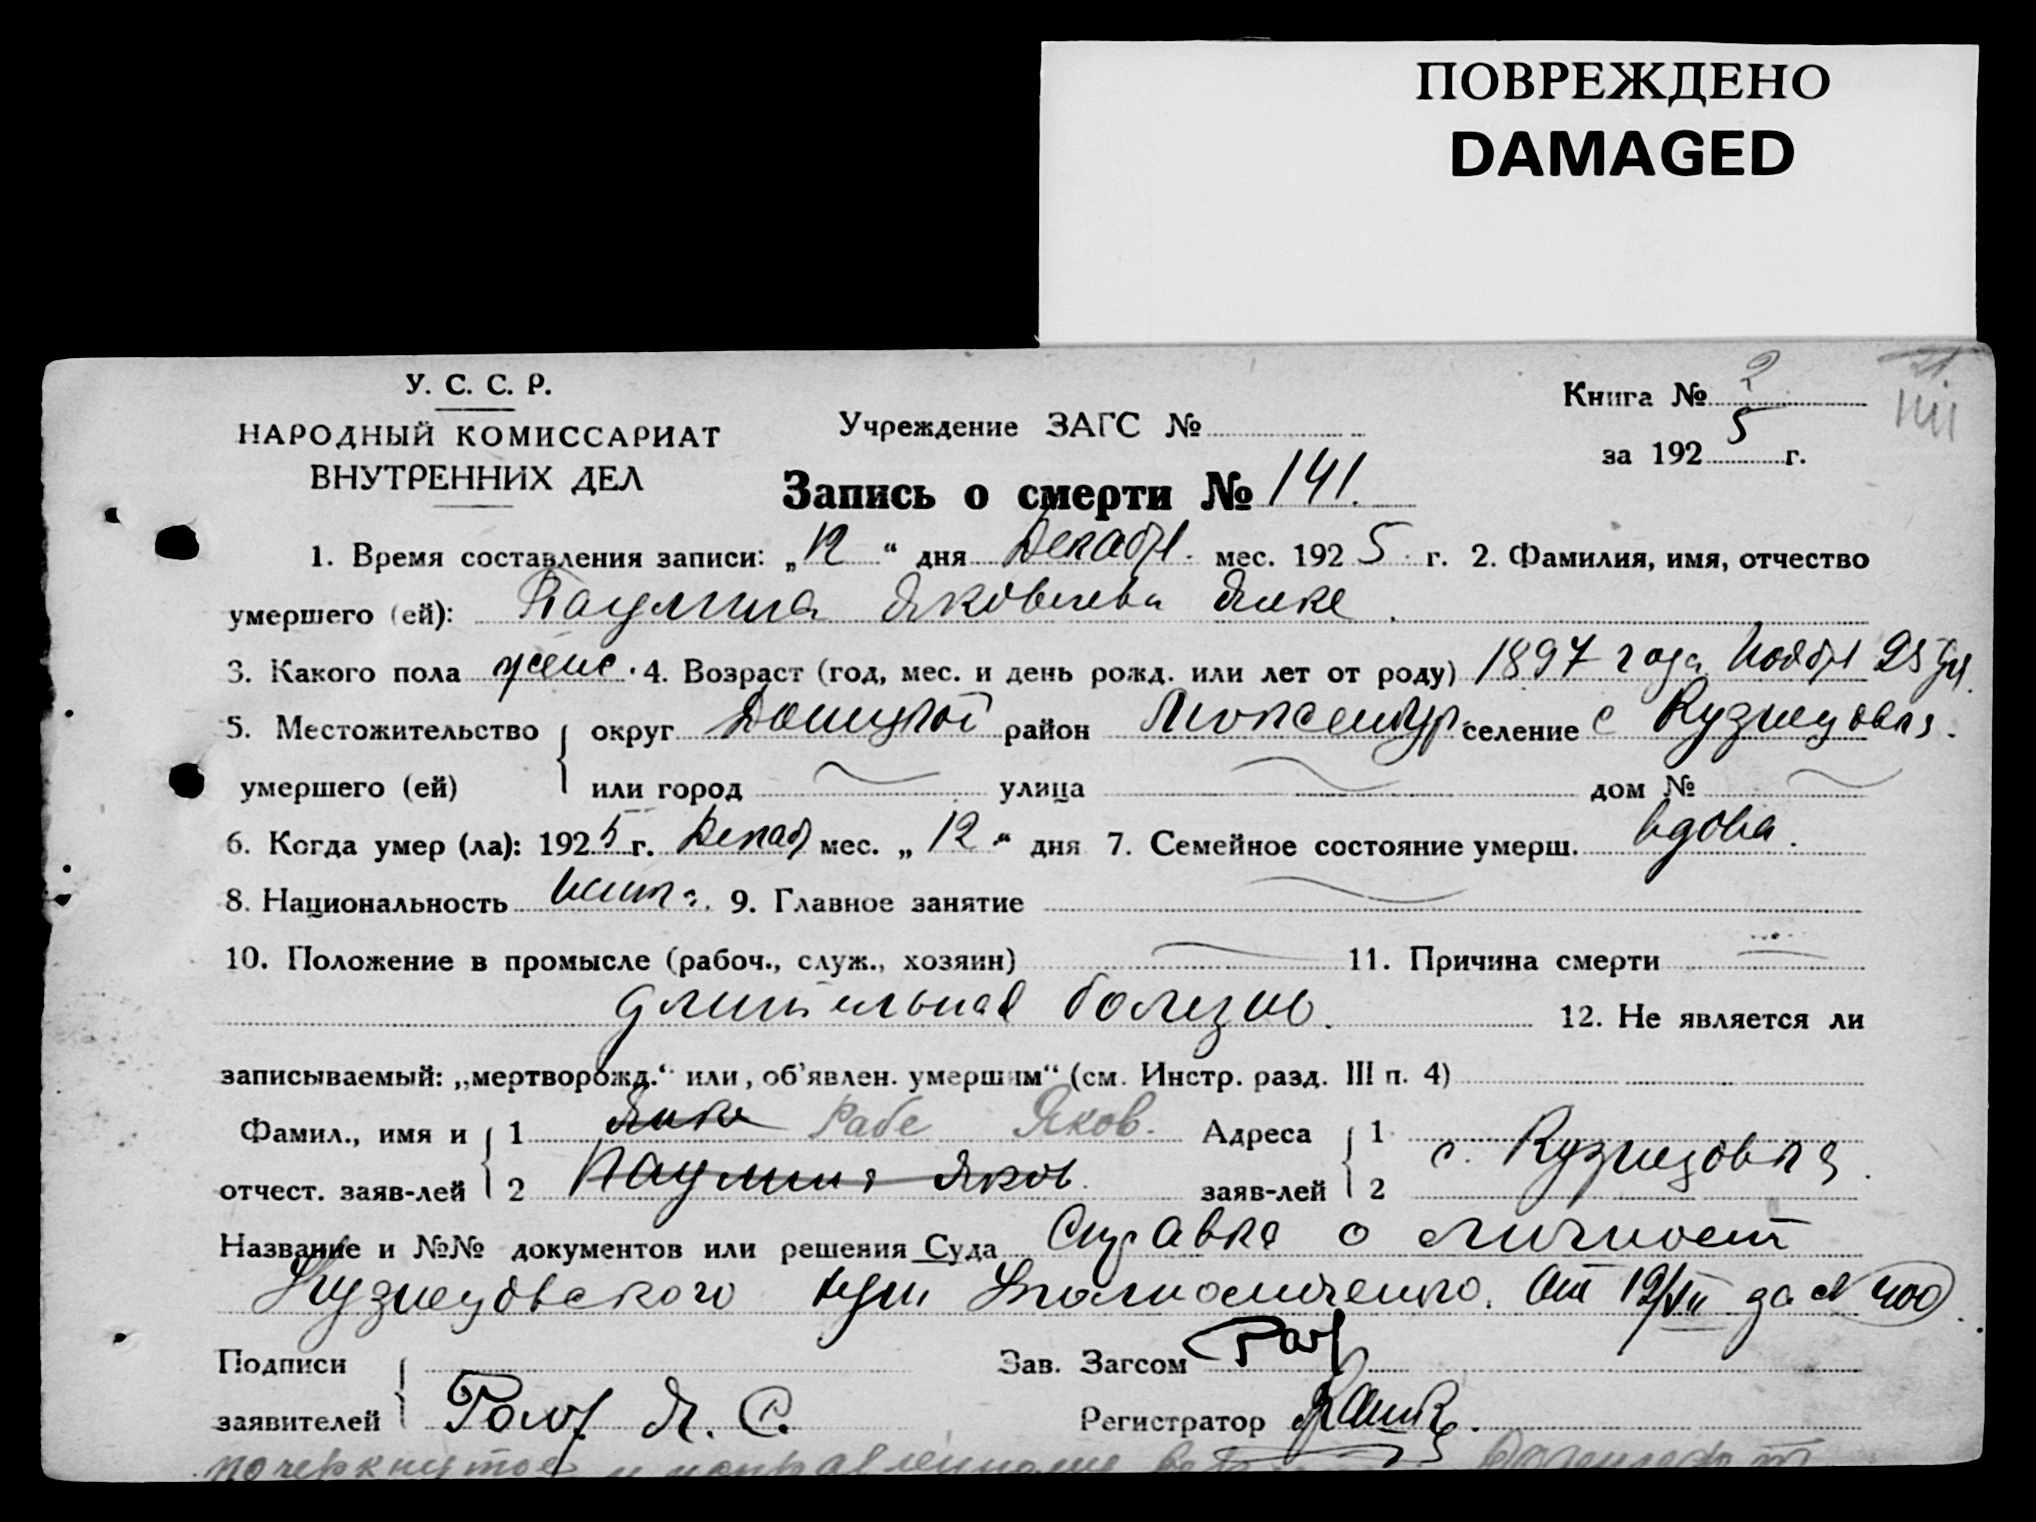 ПОВРЕЖДЕНО
DAMAGED
У. С. С. Р.
НАРОДНЫЙ КОМИССАРИАТ
ВНУТРЕННИХ ДЕЛ
Учреждение ЗАГС №
Книга № 2
за 1925 г.
Запись о смерти № 141.
1. Время составления записи: „12“ дня Декабр. мес. 1925 г. 2. Фамилия, имя, отчество
умершего (ей): Паулина Яковлевна Янке.
3. Какого пола женс. 4. Возраст (год, мес. и день рожд. или лет от роду) 1897 года Ноябр 25 дн.
5. Местожительство округ район Люксембур. селение с Кузнецовка.
умершего (ей) или город улица дом №
6. Когда умер (ла): 1925 г. Декаб мес. „12“ дня 7. Семейное состояние умерш. вдова.
8. Национальность 9. Главное занятие
10. Положение в промысле (рабоч., служ., хозяин) 11. Причина смерти
длительная болезнь. 12. Не является ли
записываемый: „мертворожд.“ или „об'явлен. умершим“ (см. Инстр. разд. III п. 4)
Фамил., имя и 1 Янке Рабе Яков. Адреса 1 с. Кузнецовка.
отчест. заяв-лей 2 Паулина Яков заяв-лей 2
Название и №№ документов или решения Суда Справка о личност
Кузнецовского от 12/XII за № 400.
Подписи Зав. Загсом
заявителей Я. С. Регистратор
почеркнутое и исправленное